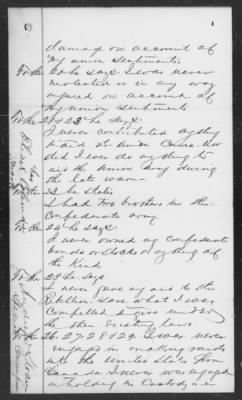 4
damage on account of
my union sentiments
To the 20 he says: I was never
molested or in any way
injured on account of
my union sentiments
To the 21 & 22 he says:
I never contributed anything
to aid the Union Cause. Nor
did I ever do anything to
aid the Union Army during
the late war —
To the 23 he states
I had two brothers in the
Confederate army.
To the 24 he says:
I never owned any Confederate
bonds or stocks or anything of
the Kind
To the 25 he says
I never gave any aid to the
Rebellion. Save what I was
Compelled to give under
the then existing laws
To the 26. 27. 28 & 29. I was never
engaged in making raids
into the United States from
Canada. I never was engaged
in holding in Custody in
his
mark